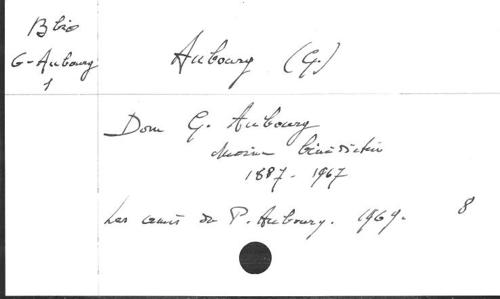 B bio
G-Aubourg
1
Aubourg (G.)
Dom G. Aubourg
Moine bénédictin
1887-1967
Les amis du P. Aubourg. 1969. 8